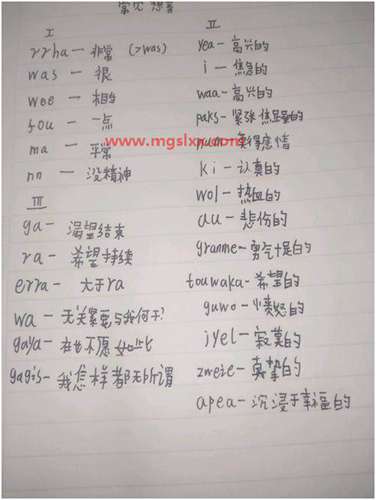 常见 想音
I
rrha — 非常 (>was)
was — 很
wee — 相当
fou — 一点
ma — 平常
nn — 没精神
III
ga — 渴望结束
ra — 希望持续
erra — 大于ra
wa — 无关紧要与我何干?
gaya — 在也不愿如此
gagis — 我怎样都无所谓
II
yea — 高兴的
i — 焦急的
waa — 高兴的
paks — 紧张焦虑的
num — 负得感情
ki — 认真的
wol — 热血的
au — 悲伤的
granme — 勇气十足的
touwaka — 希望的
guwo — 愤怒的
jyel — 寂寞的
zweie — 真挚的
apea — 沉浸于幸福的
www.mgslxp.com